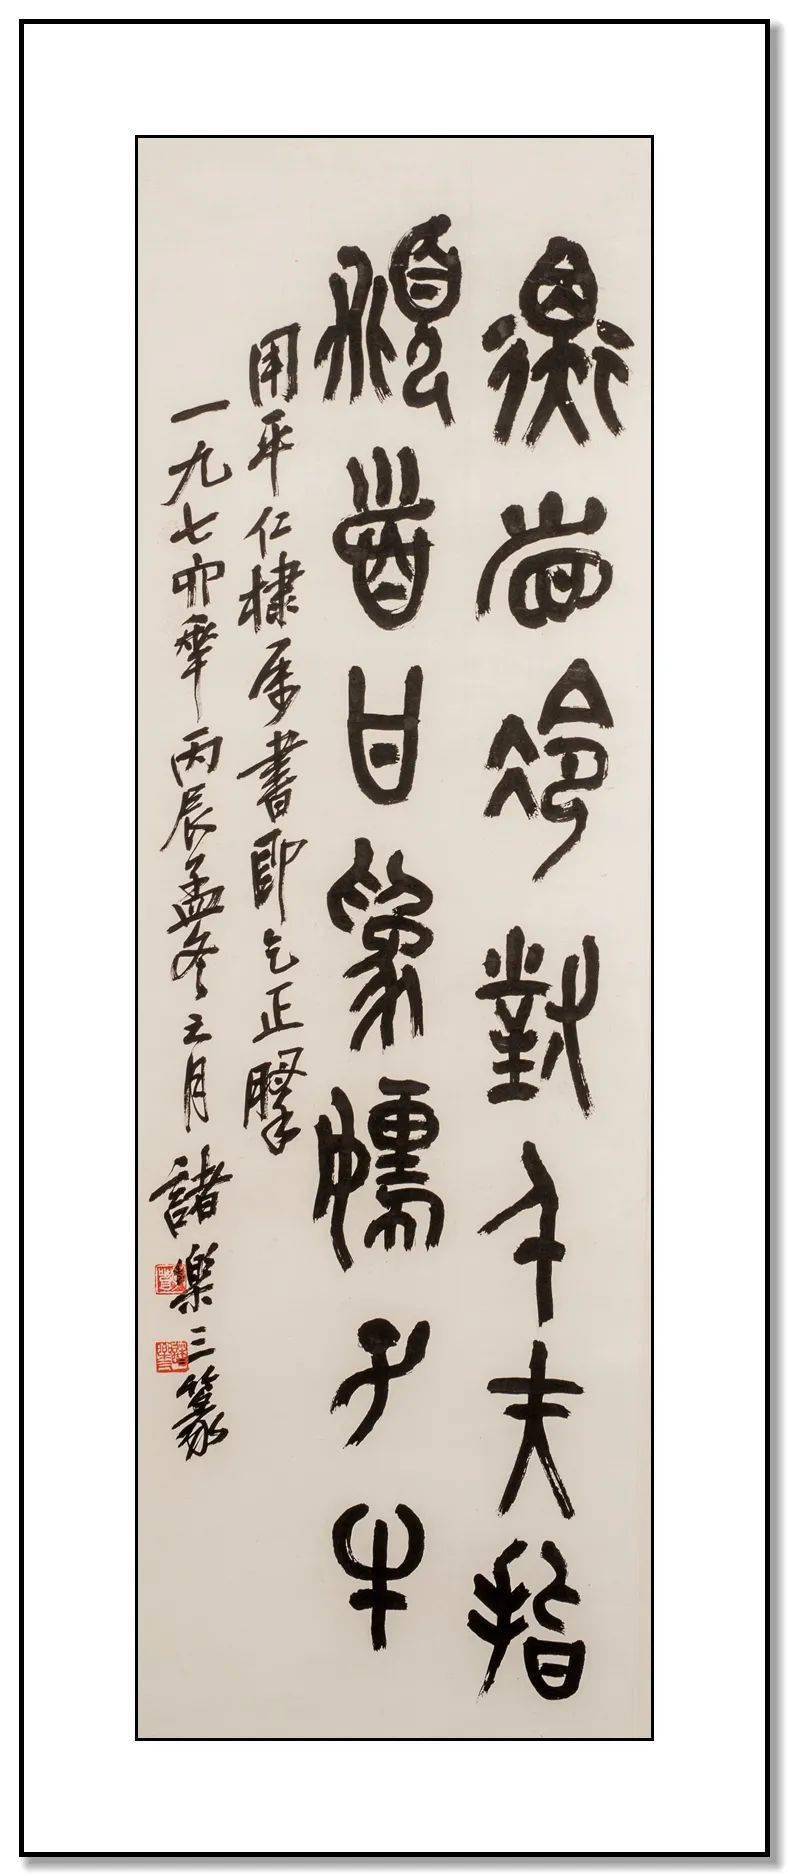 衡眉冷對千夫指
頫首甘為孺子牛
用平仁棣属書即乞正掔
一九七六年丙辰孟冬之月諸樂三篆